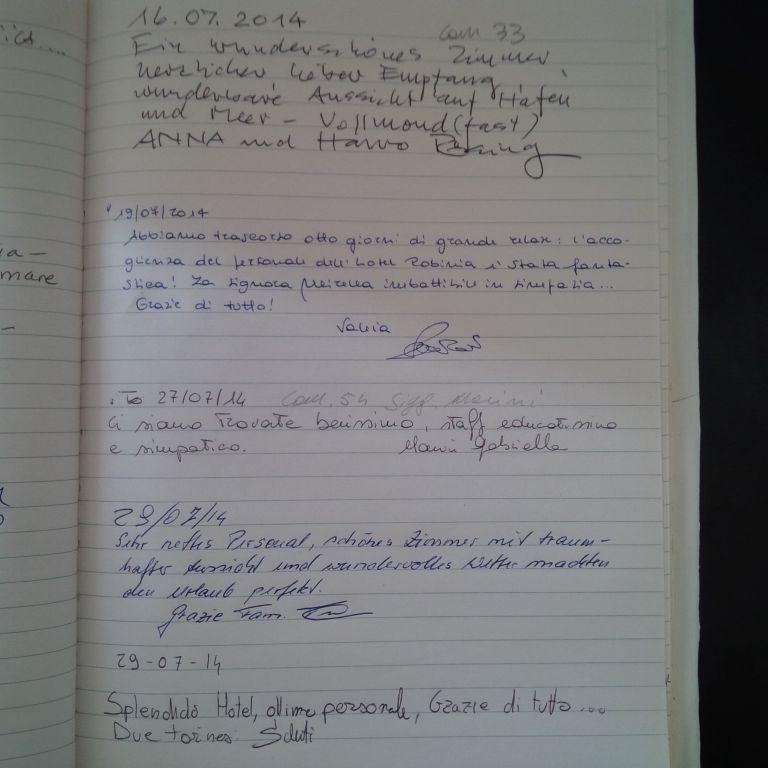 16.07.2014
cam 33
Ein wunderschönes Zimmer
herzlicher lieber Empfang,
wunderbare Aussicht auf Hafen
und Meer - Vollmond (fast)
ANNA und Hanno
19/07/2014
Abbiamo trascorso otto giorni di grande relax: l'acco-
glienza del personale dell'hotel Robinia è stata fanta-
stica! La signora Mirella imbattibile in simpatia...
Grazie di tutto!
Vania
To 27/07/14 cam. 54 Sigg. Marini
Ci siamo trovate benissimo, staff educatissimo
e simpatico. Gabriella
29/07/14
Sehr nettes Personal, schönes Zimmer mit traum-
hafter Aussicht und wundervolles Wetter machten
den Urlaub perfekt.
Grazie Fam.
29-07-14
Splendido Hotel, ottimo personale, Grazie di tutto...
Due torinesi Saluti
mare